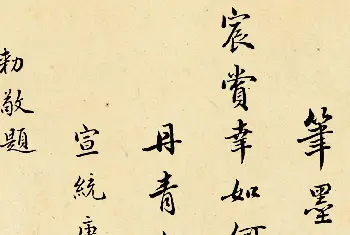 筆墨
宸賞幸如何
丹青
宣統庚
勅敬題